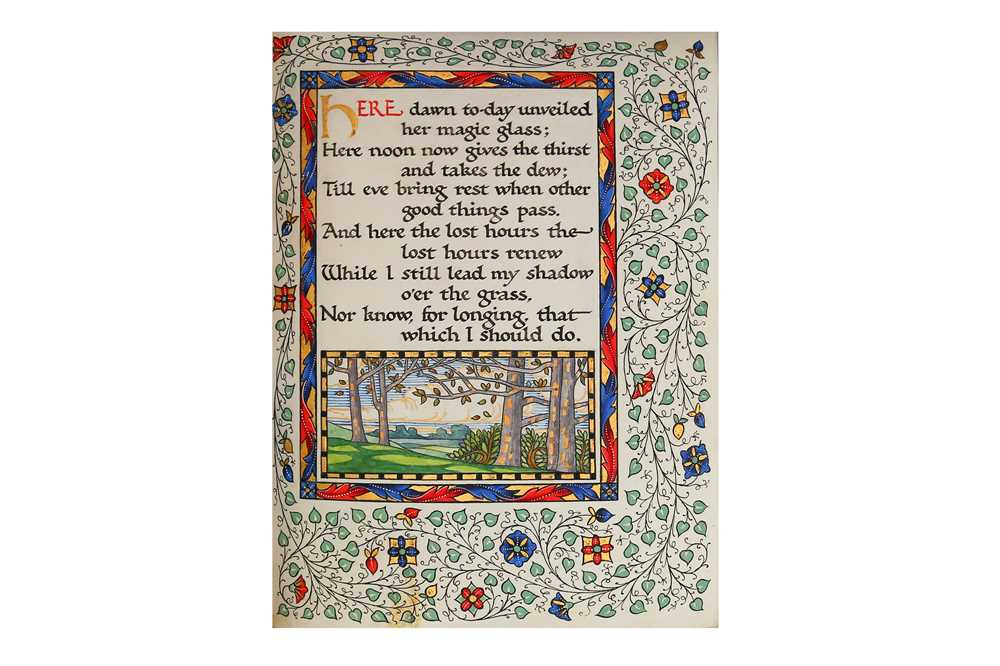 HERE dawn to-day unveiled
her magic glass;
Here noon now gives the thirst
and takes the dew;
Till eve bring rest when other
good things pass.
And here the lost hours the
lost hours renew
While I still lead my shadow
o'er the grass,
Nor know, for longing, that
which I should do.